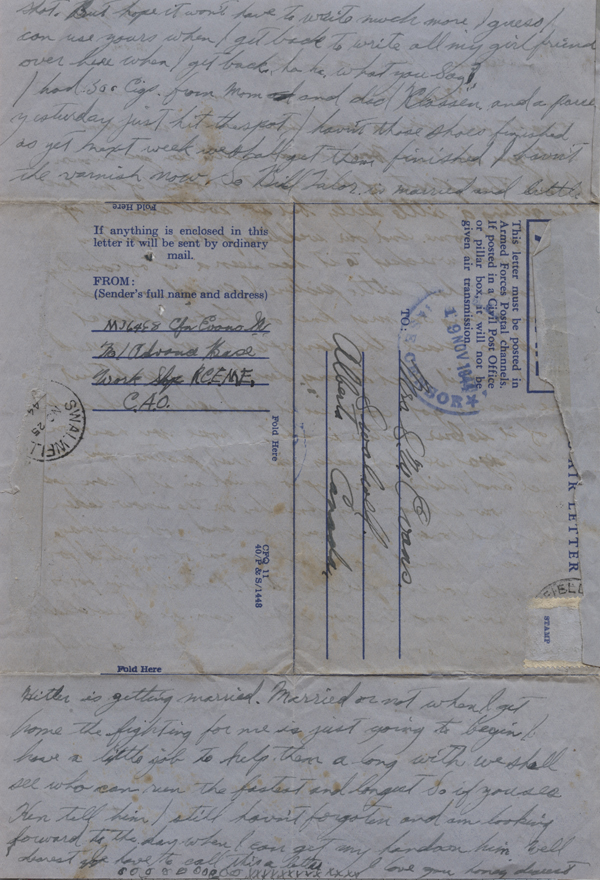 shot. But hope it won't have to write much more I guess I
can use yours when I get back to write all my girl friends
over here when I get back. ha ha. what you say?
I had 300 Cigs. from Mom and dad and a
yesterday just hit the spot I havn't those shoes finished
as yet next week we shall get them finished
the varnish now. So Bill is married and
Fold Here
If anything is enclosed in this
letter it will be sent by ordinary
mail.
FROM:
(Sender's full name and address)
Cfn Evans
Advance Base
Work RCEME,
C.A.O.
SWALWELL
25
44
Fold Here
CPQ 11
40/P & S/1448
This letter must be posted in
Armed Forces Postal channels.
If posted in a Civil Post Office
or pillar box, it will not be
given air transmission.
19 NOV 1944
TO:
Mrs Evans.
Swalwell
Alberta Canada.
AIR LETTER
STAMP
Fold Here
Hitler is getting married. Married or not when I get
home the fighting for me is just going to begin I
have a little job to help them a long with we shall
see who can run the fastest and longest so if you see
Ken tell him I still havn't forgoten and am looking
forward to the day when I can get my hands on him well
dearest have to call this a letter I love you honey dearest